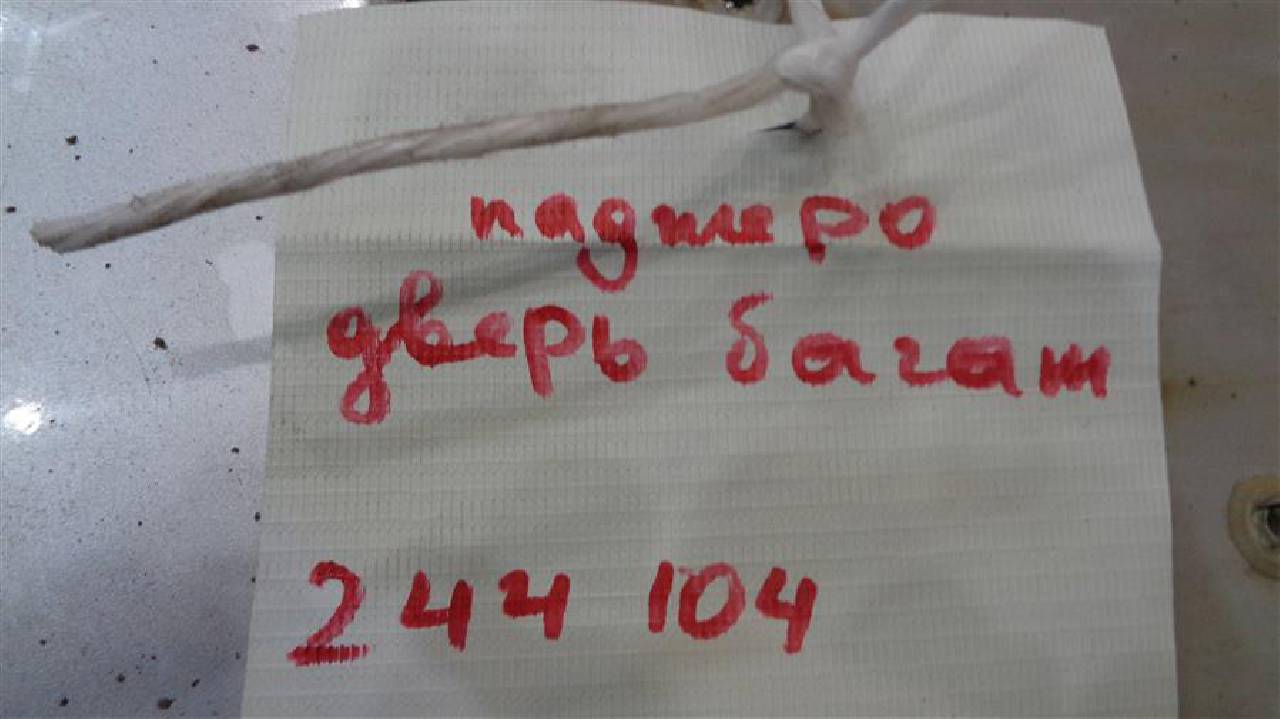 паджеро
дверь багаж
244 104